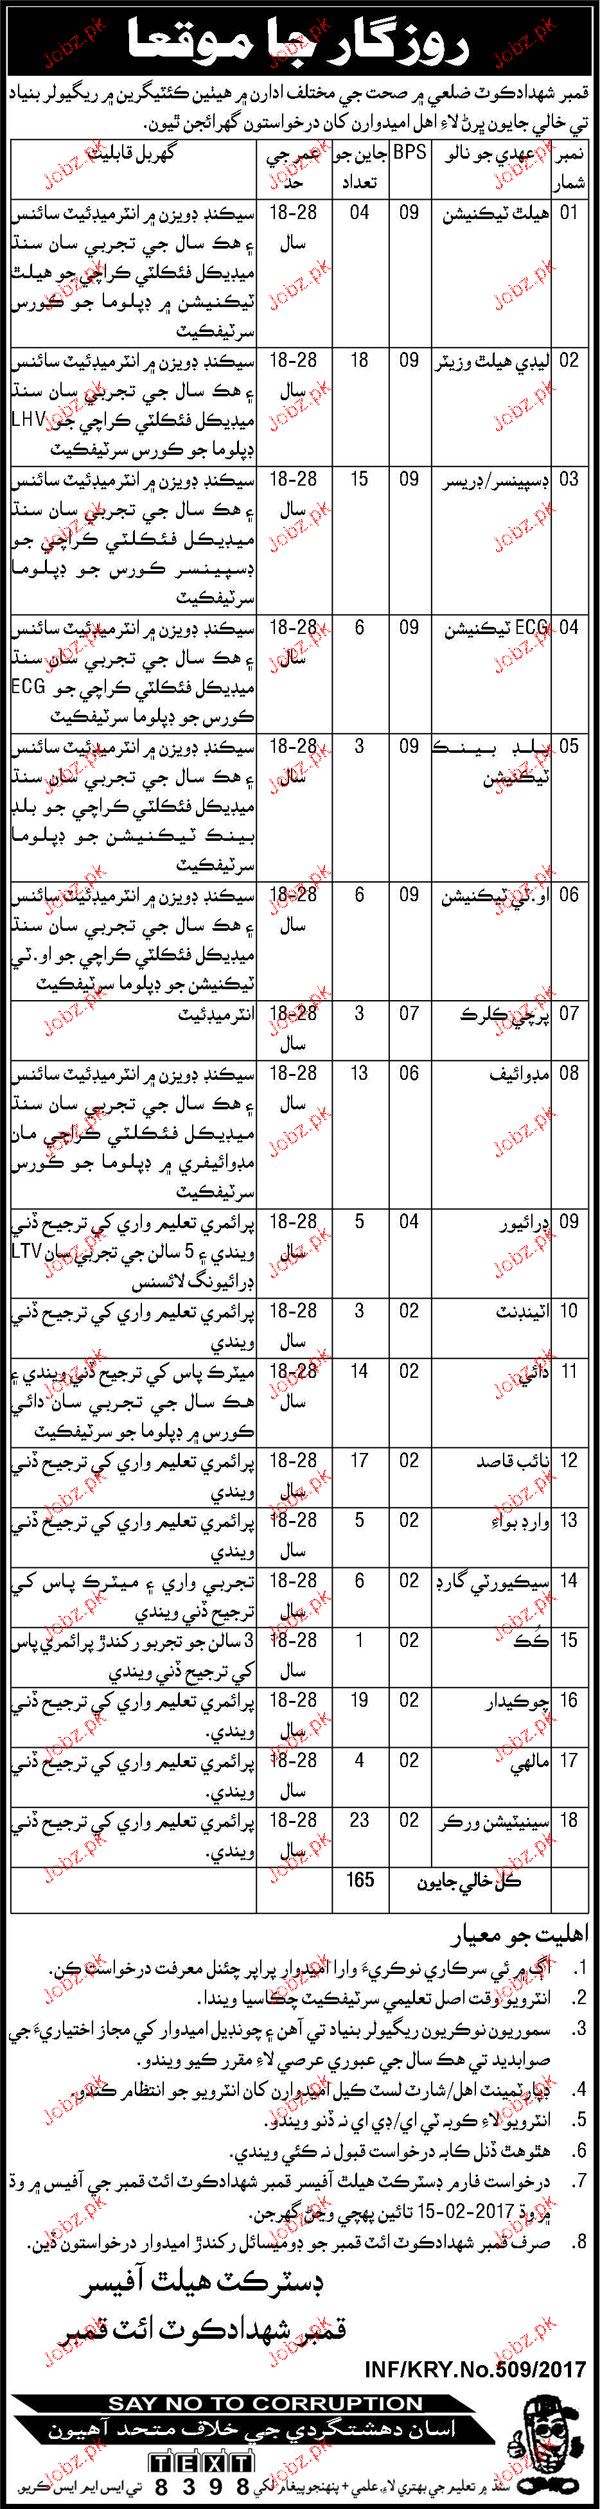 روزگار جا موقعا
قمبر شهدادڪوٽ ضلعي ۾ صحت جي مختلف ادارن ۾ هيٺين ڪئٽيگرين ۾ ريگيولر بنياد
تي خالي جايون ڀرڻ لاءِ اهل اميدوارن کان درخواستون گهرائجن ٿيون.
نمبر شمار عهدي جو نالو BPS جاين جو تعداد عمر جي حد گهربل قابليت
01 هيلٿ ٽيڪنيشن 09 04 18-28 سال سيڪنڊ ڊويزن ۾ انٽرميڊئيٽ سائنس
۽ هڪ سال جي تجربي سان سنڌ
ميڊيڪل فئڪلٽي ڪراچي جو هيلٿ
ٽيڪنيشن ۾ ڊپلوما جو ڪورس
سرٽيفڪيٽ
02 ليڊي هيلٿ وزيٽر 09 18 18-28 سال سيڪنڊ ڊويزن ۾ انٽرميڊئيٽ سائنس
۽ هڪ سال جي تجربي سان سنڌ
ميڊيڪل فئڪلٽي ڪراچي جو LHV
ڊپلوما جو ڪورس سرٽيفڪيٽ
03 ڊسپينسر/ڊريسر 09 15 18-28 سال سيڪنڊ ڊويزن ۾ انٽرميڊئيٽ سائنس
۽ هڪ سال جي تجربي سان سنڌ
ميڊيڪل فئڪلٽي ڪراچي جو
ڊسپينسر ڪورس جو ڊپلوما
سرٽيفڪيٽ
04 ECG ٽيڪنيشن 09 6 18-28 سال سيڪنڊ ڊويزن ۾ انٽرميڊئيٽ سائنس
۽ هڪ سال جي تجربي سان سنڌ
ميڊيڪل فئڪلٽي ڪراچي جو ECG
ڪورس جو ڊپلوما سرٽيفڪيٽ
05 بلڊ بينڪ ٽيڪنيشن 09 3 18-28 سال سيڪنڊ ڊويزن ۾ انٽرميڊئيٽ سائنس
۽ هڪ سال جي تجربي سان سنڌ
ميڊيڪل فئڪلٽي ڪراچي جو بلڊ
بينڪ ٽيڪنيشن جو ڊپلوما
سرٽيفڪيٽ
06 او.ٽي ٽيڪنيشن 09 6 18-28 سال سيڪنڊ ڊويزن ۾ انٽرميڊئيٽ سائنس
۽ هڪ سال جي تجربي سان سنڌ
ميڊيڪل فئڪلٽي ڪراچي جو او.ٽي
ٽيڪنيشن جو ڊپلوما سرٽيفڪيٽ
07 پرچي ڪلرڪ 07 3 18-28 سال انٽرميڊئيٽ
08 مڊوائيف 06 13 18-28 سال سيڪنڊ ڊويزن ۾ انٽرميڊئيٽ سائنس
۽ هڪ سال جي تجربي سان سنڌ
ميڊيڪل فئڪلٽي ڪراچي مان
مڊوائيفري ۾ ڊپلوما جو ڪورس
سرٽيفڪيٽ
09 ڊرائيور 04 5 18-28 سال پرائمري تعليم واري کي ترجيح ڏني
ويندي ۽ 5 سالن جي تجربي سان LTV
ڊرائيونگ لائسنس
10 اٽينڊنٽ 02 3 18-28 سال پرائمري تعليم واري کي ترجيح ڏني
ويندي
11 دائي 02 14 18-28 سال ميٽرڪ پاس کي ترجيح ڏني ويندي ۽
هڪ سال جي تجربي سان دائي
ڪورس ۾ ڊپلوما جو سرٽيفڪيٽ
12 نائب قاصد 02 17 18-28 سال پرائمري تعليم واري کي ترجيح ڏني
ويندي
13 وارڊ بواءِ 02 5 18-28 سال پرائمري تعليم واري کي ترجيح ڏني
ويندي
14 سيڪيورٽي گارڊ 02 6 18-28 سال تجربي واري ۽ ميٽرڪ پاس کي
ترجيح ڏني ويندي
15 ڪُڪ 02 1 18-28 سال 3 سالن جو تجربو رکندڙ پرائمري پاس
کي ترجيح ڏني ويندي
16 چوڪيدار 02 19 18-28 سال پرائمري تعليم واري کي ترجيح ڏني
ويندي.
17 مالهي 02 4 18-28 سال پرائمري تعليم واري کي ترجيح ڏني
ويندي.
18 سينيٽيشن ورڪر 02 23 18-28 سال پرائمري تعليم واري کي ترجيح ڏني
ويندي.
ڪل خالي جايون 165
اهليت جو معيار
1. اڳ ۾ ئي سرڪاري نوڪريءَ وارا اميدوار پراپر چئنل معرفت درخواست ڪن.
2. انٽرويو وقت اصل تعليمي سرٽيفڪيٽ چڪاسيا ويندا.
3. سموريون نوڪريون ريگيولر بنياد تي آهن ۽ چونڊيل اميدوار کي مجاز اختياريءَ جي
صوابديد تي هڪ سال جي عبوري عرصي لاءِ مقرر ڪيو ويندو.
4. ڊپارٽمينٽ اهل/شارٽ لسٽ ڪيل اميدوارن کان انٽرويو جو انتظام ڪندو.
5. انٽرويو لاءِ ڪوبه ٽي اي/ڊي اي نه ڏنو ويندو.
6. هٿوهٿ ڏنل ڪابه درخواست قبول نه ڪئي ويندي.
7. درخواست فارم ڊسٽرڪٽ هيلٿ آفيسر قمبر شهدادڪوٽ ائٽ قمبر جي آفيس ۾ وڌ
۾ وڌ 15-02-2017 تائين پهچي وڃڻ گهرجن.
8. صرف قمبر شهدادڪوٽ ائٽ قمبر جو ڊوميسائل رکندڙ اميدوار درخواستون ڏين.
ڊسٽرڪٽ هيلٿ آفيسر
قمبر شهدادڪوٽ ائٽ قمبر
INF/KRY.No.509/2017
SAY NO TO CORRUPTION
اسان دهشتگردي جي خلاف متحد آهيون
TEXT
سنڌ ۾ تعليم جي بهتري لاءِ، علمي + پنهنجو پيغام لکي 8398 تي ايس ايم ايس ڪريو.
Jobz.pk